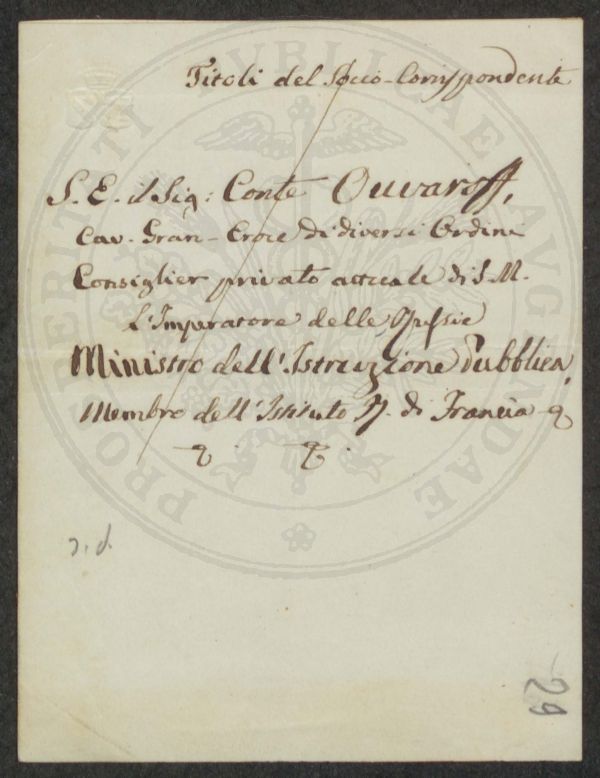 Titoli del Socio-Corrispondente
S. E. il Sig: Conte Ouvaroff,
Cav. Gran-Croce di diversi Ordini
Consiglier privato attuale di S. M.
L'Imperatore delle Russie
Ministro dell'Istruzione Pubblica,
Membro dell'Istituto di Francia
s. d.
29
PROSPERITATI PUBLICAE AUGENDAE